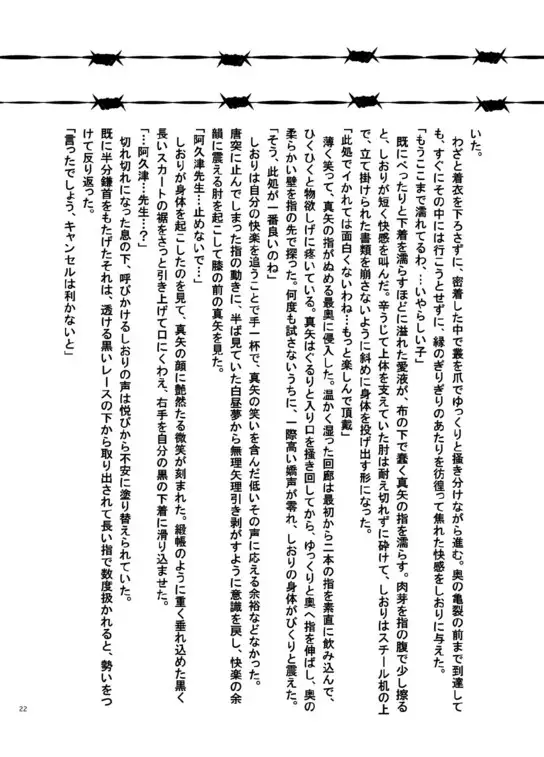 いた。
わざと着衣を下ろさずに、密着した中で叢を爪でゆっくりと掻き分けながら進む。奥の亀裂の前まで到達して
も、すぐにその中には行こうとせずに、縁のぎりぎりのあたりを彷徨って焦れた快感をしおりに与えた。
「もうここまで濡れてるわ、…いやらしい子」
既にべったりと下着を濡らすほどに溢れた愛液が、布の下で蠢く真矢の指を濡らす。肉芽を指の腹で少し擦る
と、しおりが短く快感を叫んだ。辛うじて上体を支えていた肘は耐え切れずに砕けて、しおりはスチール机の上
で、立て掛けられた書類を崩さないように斜めに身体を投げ出す形になった。
「此処でイかれては面白くないわね…もっと楽しんで頂戴」
薄く笑って、真矢の指がぬめる最奥に侵入した。温かく湿った回廊は最初から二本の指を素直に飲み込んで、
ひくひくと物欲しげに疼いている。真矢はぐるりと入り口を掻き回してから、ゆっくりと奥へ指を伸ばし、奥の
柔らかい壁を指の先で探った。何度も試さないうちに、一際高い嬌声が零れ、しおりの身体がびくりと震えた。
「そう、此処が一番良いのね」
しおりは自分の快楽を追うことで手一杯で、真矢の笑いを含んだ低いその声に応える余裕などなかった。
唐突に止んでしまった指の動きに、半ば見ていた白昼夢から無理矢理引き剥がすように意識を戻し、快楽の余
韻に震える肘を起こして膝の前の真矢を見た。
「阿久津先生…止めないで…」
しおりが身体を起こしたのを見て、真矢の顔に艶然たる微笑が刻まれた。緞帳のように重く垂れ込めた黒く
長いスカートの裾をさっと引き上げて口にくわえ、右手を自分の黒の下着に滑り込ませた。
「…阿久津…先生…？」
切れ切れになった息の下、呼びかけるしおりの声は悦びから不安に塗り替えられていた。
既に半分鎌首をもたげたそれは、透ける黒いレースの下から取り出されて長い指で数度扱かれると、勢いをつ
けて反り返った。
「言ったでしょう、キャンセルは利かないと」
22